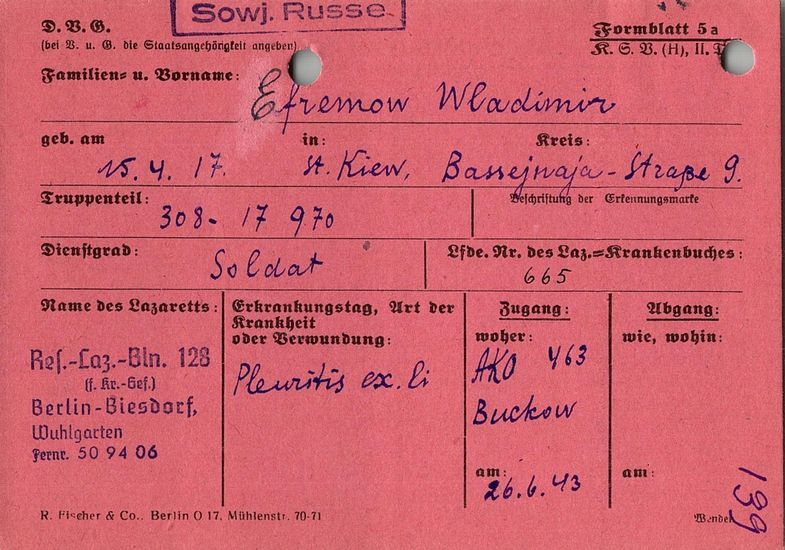 Sowj. Russe
D. V. G.
Formblatt 5a
(bei V. u. G. die Staatsangehörigkeit angeben)
K. S. V. (H), II.
Familien- u. Vorname:
Efremow Wladimir
geb. am in: Kreis:
15.4.17. St. Kiew, Bassejnaja-Straße 9.
Truppenteil:
Beschriftung der Erkennungsmarke
308-17 970
Dienstgrad:
Lfde. Nr. des Laz.=Krankenbuches:
Soldat
665
Name des Lazaretts:
Res.-Laz.-Bln. 128
(f. Kr.-Gef.)
Berlin-Biesdorf,
Wuhlgarten
Fernr. 50 94 06
Erkrankungstag, Art der
Krankheit
oder Verwundung:
Pleuritis ex. li
Zugang:
woher:
AKO 463
Buckow
am:
26.6.43
Abgang:
wie, wohin:
am:
139
R. Fischer & Co., Berlin O 17, Mühlenstr. 70-71